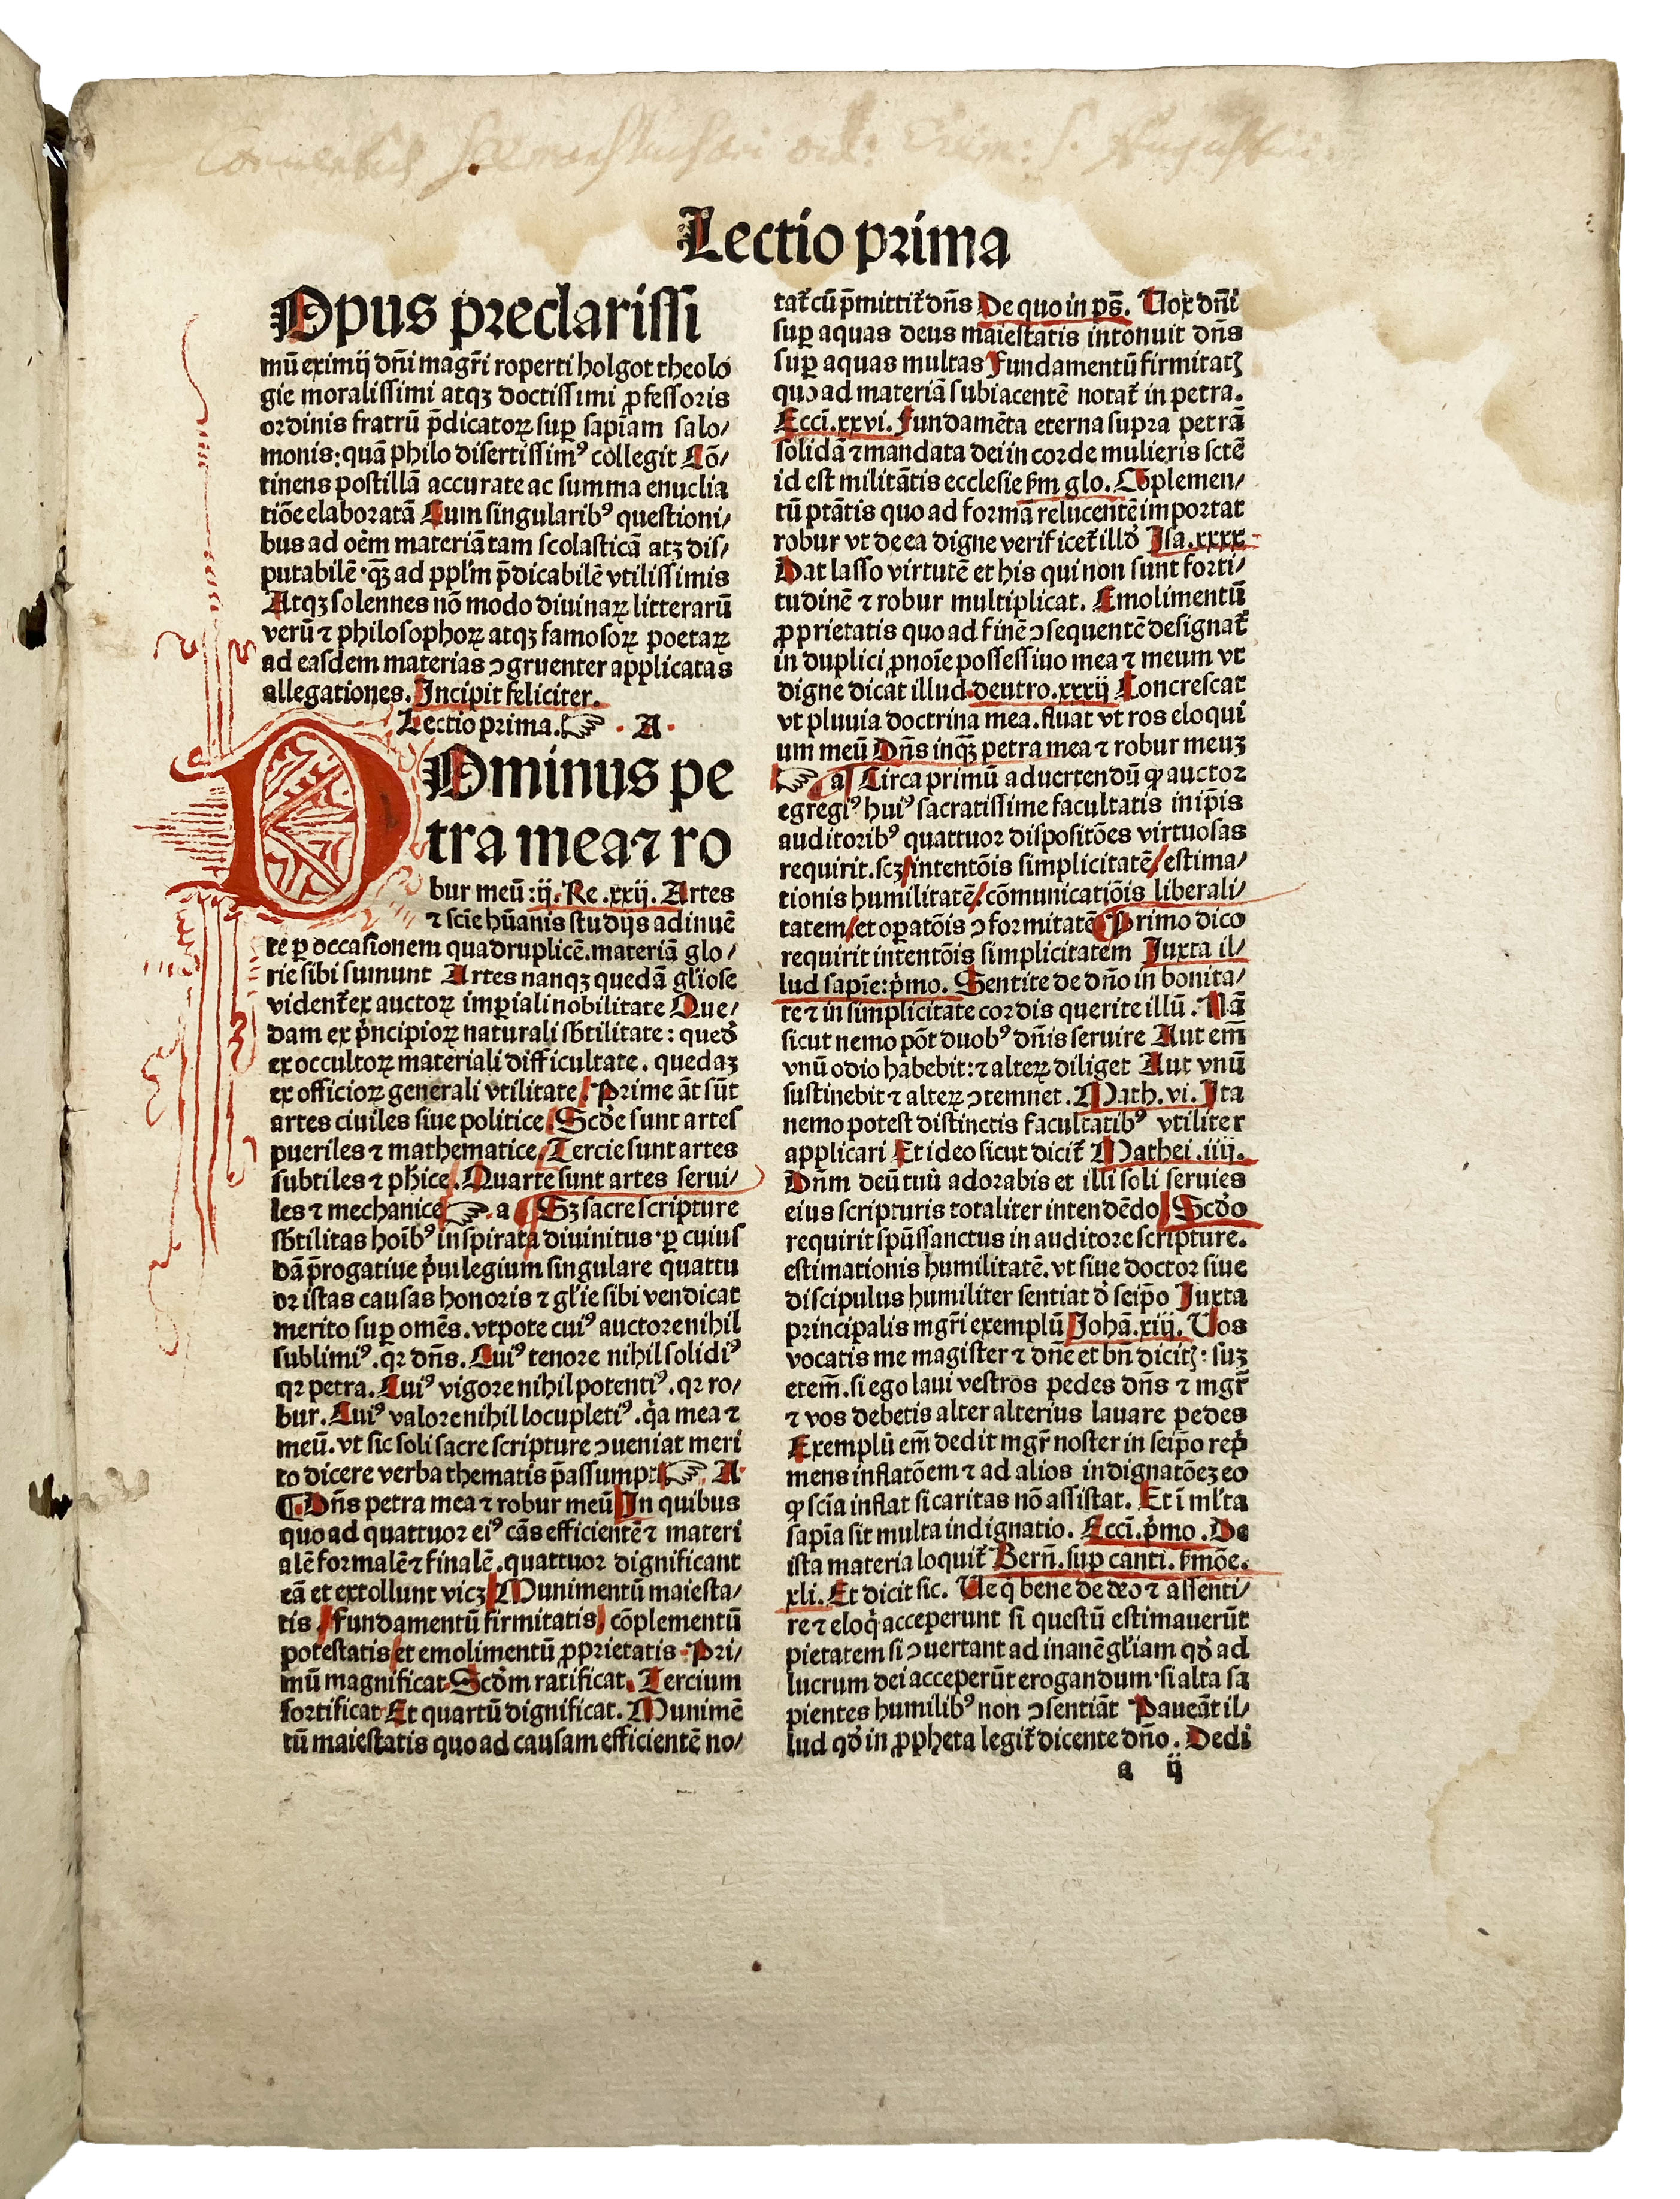 ord: Erem: S. Augustini.
Lectio prima
Opus preclarissi
mū eximij dn̄i magr̄i roperti holgot theolo
gie moralissimi atqꝫ doctissimi ꝓfessoris
ordinis fratrū p̄dicatoꝝ suꝑ sapiam salo/
monis: quā philo disertissimꝰ collegit Cō/
tinens postillā accurate ac summa enuclia
tiōe elaboratā Cum singularibꝰ questioni/
bus ad oēm materiā tam scolasticā atꝫ dis/
putabilē · qꝫ̄ ad ppl'm p̄dicabilē vtilissimis
Atqꝫ solennes nō modo diuinaꝝ litterarū
verū ⁊ philosophoꝝ atqꝫ famosoꝝ poetaꝝ
ad easdem materias ꝯgruenter applicatas
allegationes. Incipit feliciter.
Lectio prima. ☞ · A ·
DOminus pe
tra mea ⁊ ro
bur meū: ij. Re. xxij. Artes
⁊ scīe hūanis studijs adinuē
te ꝑ occasionem quadruplicē. materiā glo/
rie sibi sumunt Artes nanqꝫ quedā gl'iose
vident̄ ex auctoꝝ imꝑiali nobilitate Que/
dam ex p̄ncipioꝝ naturali sb̄tilitate: qued̄
ex occultoꝝ materiali difficultate. quedaꝫ
ex officioꝝ generali vtilitate. Prime āt sūt
artes ciuiles siue politice. Scd̄e sunt artes
pueriles ⁊ mathematice. Tercie sunt artes
subtiles ⁊ phīce. Quarte sunt artes serui/
les ⁊ mechanice ☞ . a ¶ Sꝫ sacre scripture
sb̄tilitas hoībꝰ inspirata diuinitus · ꝑ cuius
dā p̄rogatiue p̄uilegium singulare quattu
or istas causas honoris ⁊ gl'ie sibi vendicat
merito suꝑ omēs. vtpote cuiꝰ auctore nihil
sublimiꝰ. qꝛ dn̄s. Cuiꝰ tenore nihil solidiꝰ
qꝛ petra. Cuiꝰ vigore nihil potentiꝰ. qꝛ ro/
bur. Cuiꝰ valore nihil locupletiꝰ. q̇a mea ⁊
meū. vt sic soli sacre scripture ꝯueniat meri
to dicere verba thematis p̄assumpti ☞ A ·
¶ Dn̄s petra mea ⁊ robur meū In quibus
quo ad quattuor eiꝰ cās efficientē ⁊ materi
alē formalē ⁊ finalē. quattuor dignificant
eā et extollunt vicꝫ Munimentū maiesta/
tis Fundamentū firmitatis cōplementū
potestatis et emolimentū ꝓprietatis · Pri/
mū magnificat Scd̄m ratificat. Tercium
fortificat Et quartū dignificat. Munimē
tū maiestatis quo ad causam efficientē no/
tat̄ cū p̄mittit̄ dn̄s De quo in ps̄. Vox dn̄i
suꝑ aquas deus maiestatis intonuit dn̄s
suꝑ aquas multas Fundamentū firmitatꝫ
quo ad materiā subiacentē notat̄ in petra.
Ecci. xxvi. Fundamēta eterna supra petrā
solidā ⁊ mandata dei in corde mulieris sctē
id est militātis ecclesie s̄m glo. Cōplemen/
tū ptātis quo ad formā relucentē importat
robur vt de ea digne verificet̄ illd̄ Isa. xxxx
Dat lasso virtutē et his qui non sunt forti/
tudinē ⁊ robur multiplicat. Emolimentū
ꝓprietatis quo ad finē ꝯsequentē designat̄
in duplici ꝓnoīe possessiuo mea ⁊ meum vt
digne dicat illud. deutro. xxxij Concrescat
vt pluuia doctrina mea. fluat vt ros eloqui
um meū Dn̄s inqꝫ̄ petra mea ⁊ robur meuꝫ
☞ a Circa primū aduertendū ꝙ auctor
egregiꝰ huiꝰ sacratissime facultatis in ip̄is
auditoribꝰ quattuor dispositōes virtuosas
requirit. scꝫ intentōis simplicitatē / estima/
tionis humilitatē / cōmunicatiōis liberali/
tatem / et oꝑatōis ꝯformitatē Primo dico
requirit intentōis simplicitatem Juxta il/
lud sapīe: p̄mo. Sentite de dn̄o in bonita/
te ⁊ in simplicitate cordis querite illū. Nā
sicut nemo pōt duobꝰ dn̄is seruire Aut em̄
vnū odio habebit: ⁊ alteꝝ diliget Aut vnū
sustinebit ⁊ alteꝝ ꝯtemnet. Math. vi. Ita
nemo potest distinctis facultatibꝰ vtiliter
applicari Et ideo sicut dicit̄ Mathei. iiij.
Dn̄m deū tuū adorabis et illi soli seruies
eius scripturis totaliter intendēdo Scd̄o
requirit spūssanctus in auditore scripture.
estimationis humilitatē. vt siue doctor siue
discipulus humiliter sentiat d̄ seip̄o Juxta
principalis mgr̄i exemplū Johā. xiij. Vos
vocatis me magister ⁊ dn̄e et bn̄ dicitꝫ: suꝫ
etem̄. si ego laui vestros pedes dn̄s ⁊ mgr̄
⁊ vos debetis alter alterius lauare pedes
Exemplū em̄ dedit mgr̄ noster in seip̄o rep̄
mens inflatōem ⁊ ad alios indignatōeꝫ eo
ꝙ scīa inflat si caritas nō assistat. Et ī ml'ta
sapīa sit multa indignatio. Ecci. p̄mo. De
ista materia loquit̄ Bern̄. suꝑ canti. s̄mōe.
xli. Et dicit sic. Ve q̇ bene de deo ⁊ assenti/
re ⁊ eloq̇ acceperunt si questū estimauerūt
pietatem si ꝯuertant ad inanē gl'iam qd̄ ad
lucrum dei acceperūt erogandum · si alta sa
pientes humilibꝰ non ꝯsentiāt Paueāt il/
lud qd̄ in ꝓpheta legit̄ dicente dn̄o. Dedi
a ij